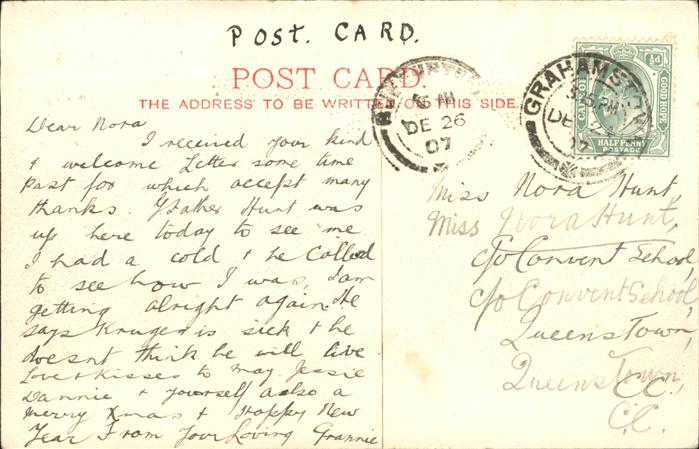 POST. CARD.
POST CARD
THE ADDRESS TO BE WRITTEN ON THIS SIDE.
6 AM
DE 26
07
GRAHAMSTOWN
PM
DE
07
GOOD HOPE
½d
HALF PENNY
POSTAGE
Dear Nora
I received your kind
& welcome Letter some time
past for which accept many
thanks. Gfather Hunt was
up here today to see me
I had a cold & he Called
to see how I was. I am
getting alright again. He
says Kruger is sick & he
doesnt think he will live
Love & Kisses to May. Jessie
Dannie & yourself also a
Merry Xmas & Happy New
Year From Your Loving Grannie
Miss Nora Hunt,
Miss Nora Hunt,
c/o Convent School
c/o Convent School,
Queenstown,
Queenstown,
C.C.,
C.C.